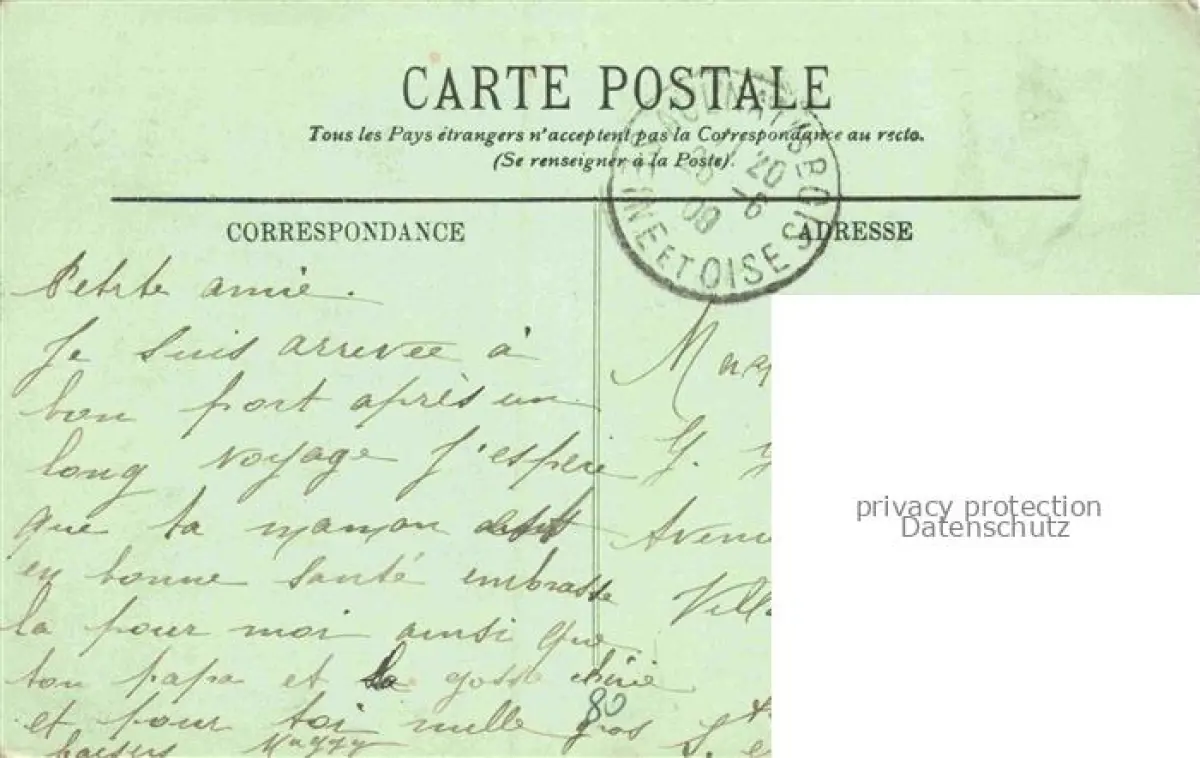 CARTE POSTALE
Tous les Pays étrangers n'acceptent pas la Correspondance au recto.
(Se renseigner à la Poste).
CORRESPONDANCE
ADRESSE
SEINE ET OISE
20
26 -6
09
Petite amie.
Je suis arrivée à
bon port après un
long voyage J'espère
que ta maman est
en bonne santé embrasse
la pour moi ainsi que
ton papa et la gosse
et pour toi mille gros
baisers
80
G.
privacy protection
Datenschutz